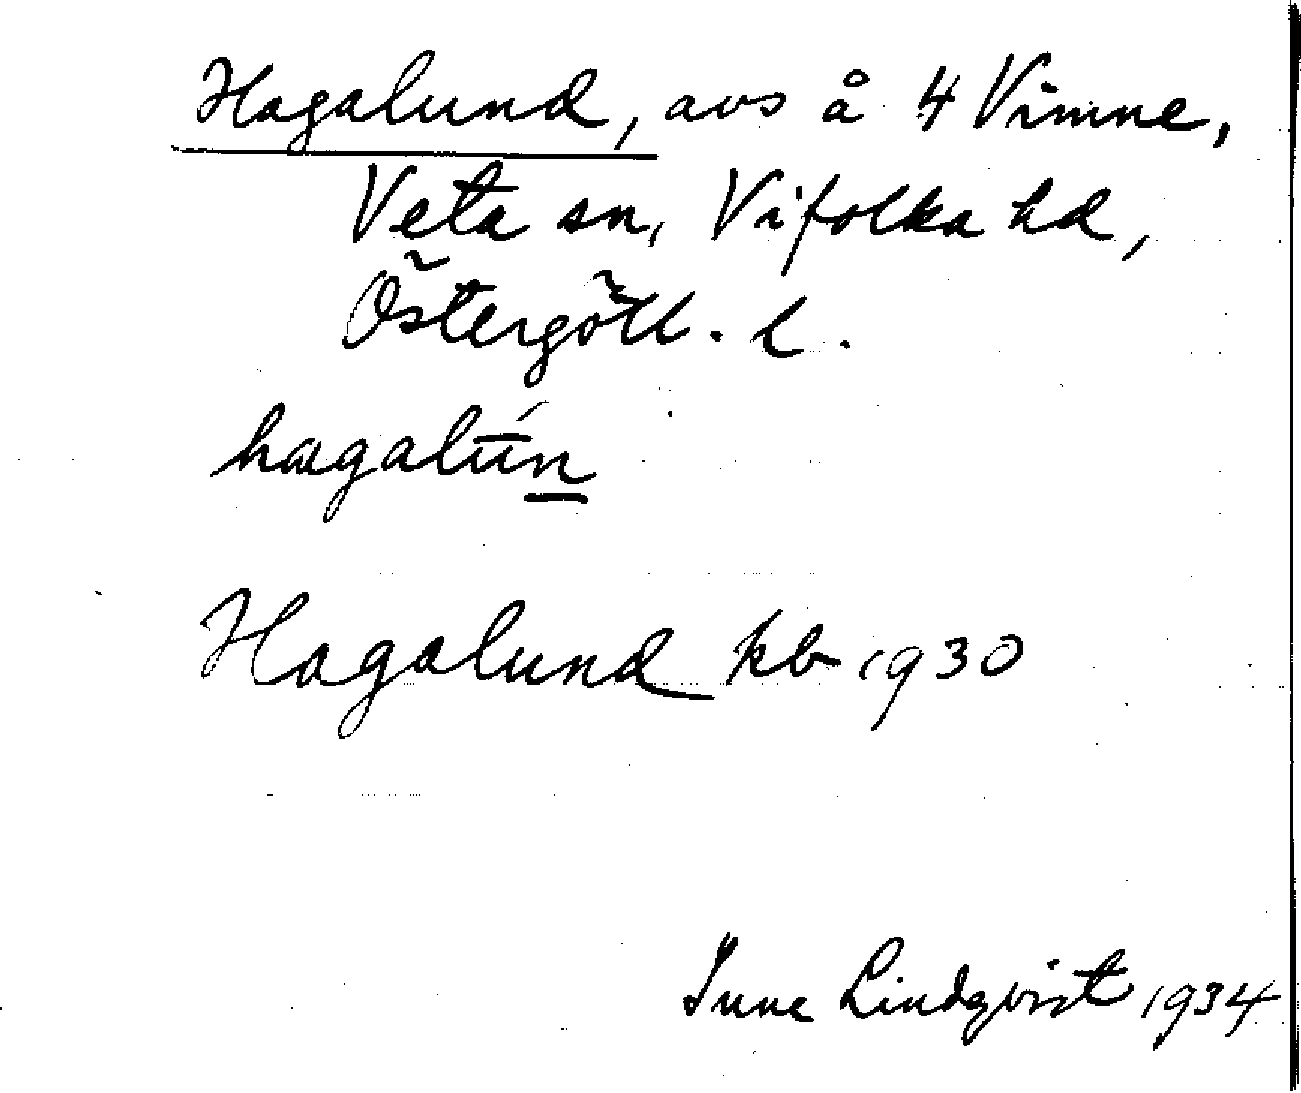 Hagalund, avs å 4 Vimne,
Veta sn, Vifolka hd,
Östergötl. l.
hagalūń
Hagalund kb 1930
Sune Lindqvist 1934